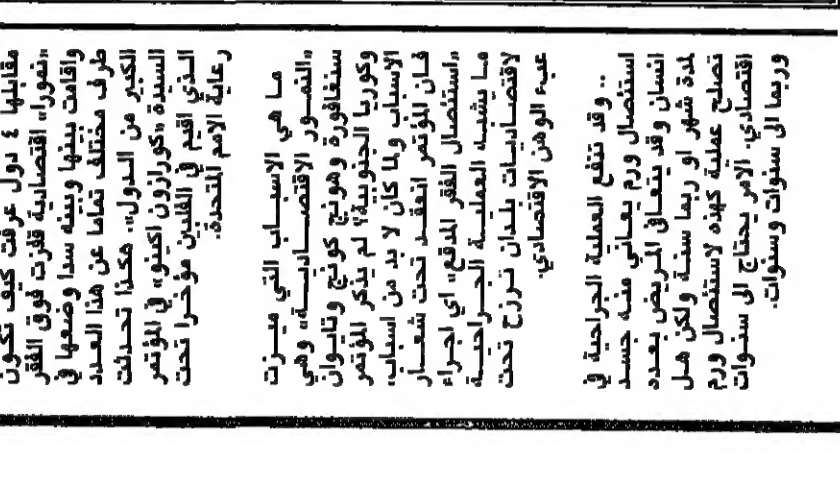 مقابلها ٤ دول عرفت كيف تكون
«نمورا» اقتصادية قفزت فوق الفقر
واقامت بينها وبينه سدا وضعها في
طرف مختلف تماما عن هذا العدد
الكبير من الدول». هكذا تحدثت
السيدة «كورازون اكينو» في المؤتمر
الذي اقيم في الفلبين مؤخرا تحت
رعاية الامم المتحدة.
ما هي الاسباب التي ميزت
«النمور الاقتصادية» وهي
سنغافورة وهونج كونج وتايوان
وكوريا الجنوبية؟ لم يذكر المؤتمر
الاسباب ولما كان لا بد من اسباب،
فان المؤتمر انعقد تحت شعار
«استئصال الفقر المدقع» اي اجراء
ما يشبه العملية الجراحية
لاقتصاديات بلدان ترزح تحت
عبء الوهن الاقتصادي.
.. وقد تنفع العملية الجراحية في
استئصال ورم يعاني منه جسد
انسان وقد يتعافى المريض بعده
لمدة شهر او ربما سنة ولكن هل
تصلح عملية كهذه لاستئصال ورم
اقتصادي. الامر يحتاج الى سنوات
وربما الى سنوات وسنوات.